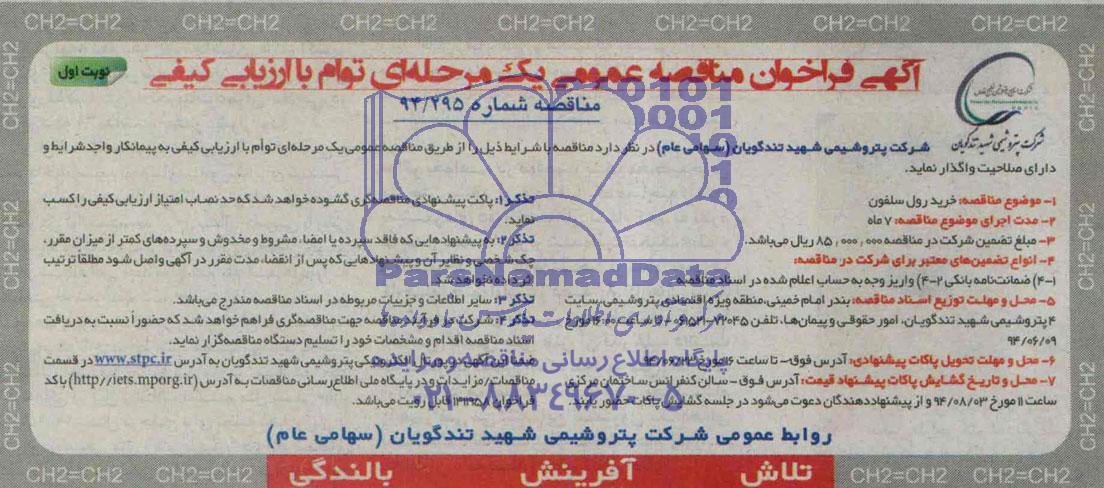 CH2=CH2 CH2=CH2 CH2=CH2 CH2=CH2 CH2=CH2 CH2=CH2 CH2=CH2
آگهی فراخوان مناقصه عمومی یک مرحله‌ای توام با ارزیابی کیفی
نوبت اول
مناقصه شماره ۹۴/۲۹۵
شرکت پتروشیمی شهید تندگویان
شرکت پتروشیمی شهید تندگویان (سهامی عام) در نظر دارد مناقصه با شرایط ذیل را از طریق مناقصه عمومی یک مرحله‌ای توأم با ارزیابی کیفی به پیمانکار واجد شرایط و
دارای صلاحیت واگذار نماید.
۱- موضوع مناقصه: خرید رول سلفون
۲- مدت اجرای موضوع مناقصه: ۷ ماه
۳- مبلغ تضمین شرکت در مناقصه ۸۵,۰۰۰,۰۰۰ ریال می‌باشد.
۴- انواع تضمین‌های معتبر برای شرکت در مناقصه:
۴-۱) ضمانت‌نامه بانکی ۴-۲) واریز وجه به حساب اعلام شده در اسناد مناقصه
۵- محل و مهلت توزیع اسناد مناقصه: بندر امام خمینی، منطقه ویژه اقتصادی پتروشیمی، سایت
۴ پتروشیمی شهید تندگویان، امور حقوقی و پیمان‌ها، تلفن ۷۲۰۴۵-۰۶۱۵۲۱ - تا ساعت ۱۶:۰۰ مورخ
۹۴/۰۶/۰۹
۶- محل و مهلت تحویل پاکات پیشنهادی: آدرس فوق - تا ساعت ۱۶ مورخ
۷- محل و تاریخ گشایش پاکات پیشنهاد قیمت: آدرس فوق - سالن کنفرانس ساختمان مرکزی
ساعت ۱۱ مورخ ۹۴/۰۸/۰۳ و از پیشنهاددهندگان دعوت می‌شود در جلسه گشایش پاکات حضور یابند.
تذکر ۱: پاکت پیشنهادی مناقصه‌گری گشوده خواهد شد که حد نصاب امتیاز ارزیابی کیفی را کسب
نماید.
تذکر ۲: به پیشنهادهایی که فاقد سپرده یا امضا، مشروط و مخدوش و سپرده‌های کمتر از میزان مقرر،
چک شخصی و نظایر آن و پیشنهادهایی که پس از انقضاء مدت مقرر در آگهی واصل شود مطلقاً ترتیب
اثر داده نخواهد شد.
تذکر ۳: سایر اطلاعات و جزییات مربوطه در اسناد مناقصه مندرج می‌باشد.
تذکر ۴: شرکت در فرآیند مناقصه جهت مناقصه‌گری فراهم خواهد شد که حضوراً نسبت به دریافت
اسناد مناقصه اقدام و مشخصات خود را تسلیم دستگاه مناقصه‌گزار نماید.
ضمناً این آگهی در پورتال الکترونیکی پتروشیمی شهید تندگویان به آدرس www.stpc.ir در قسمت
مناقصات/مزایدات و در پایگاه ملی اطلاع‌رسانی مناقصات به آدرس (http://iets.mporg.ir) با کد
فراخوان قابل رویت می‌باشد.
ParsNamadData
پایگاه اطلاع رسانی مناقصه و مزایده
۰۲۱-۸۸۳۴۹۶۷۰-۵
روابط عمومی شرکت پتروشیمی شهید تندگویان (سهامی عام)
تلاش آفرینش بالندگی
CH2=CH2 CH2=CH2 CH2=CH2 CH2=CH2